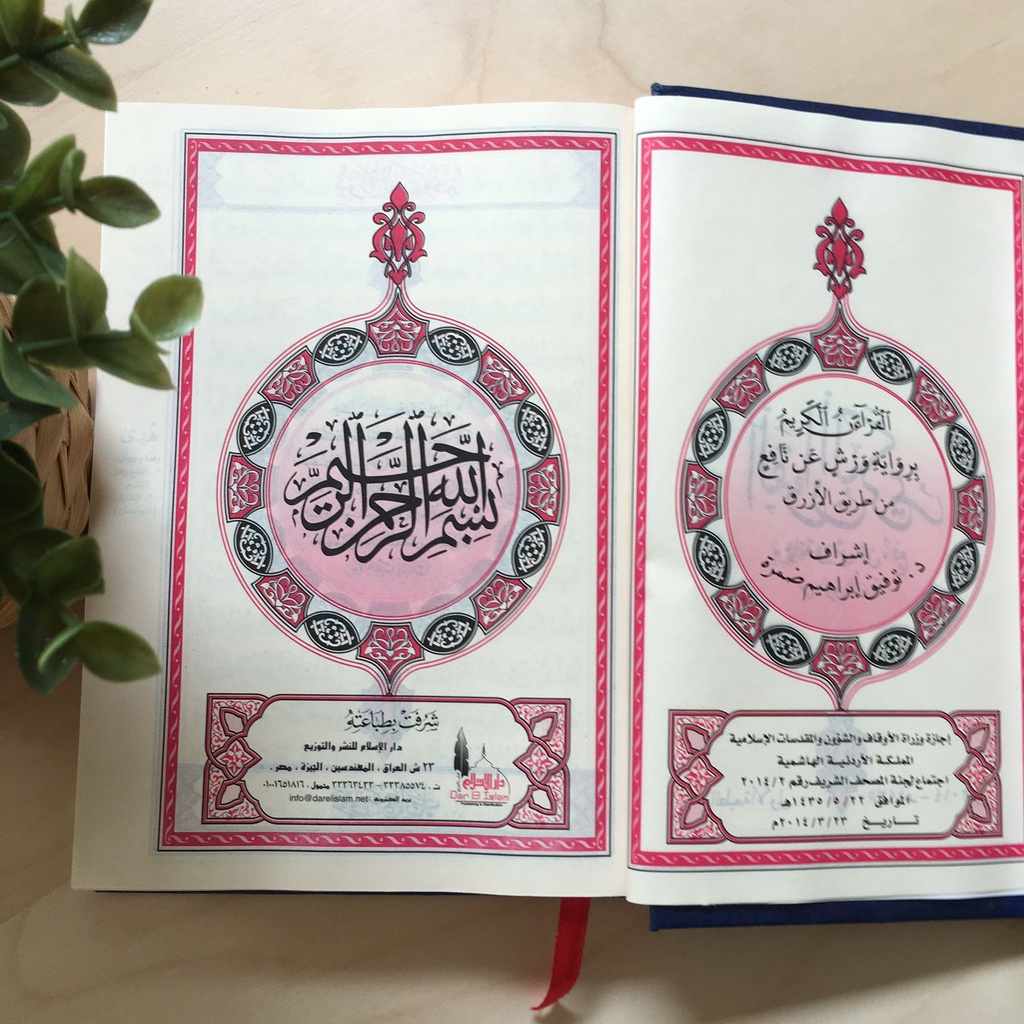 القرءان الكريم
برواية ورش عن نافع
من طريق الأزرق
إشراف
د. توفيق إبراهيم ضمرة
إجازة وزارة الأوقاف والشؤون والمقدسات الإسلامية
المملكة الأردنية الهاشمية
اجتماع لجنة المصحف الشريف رقم ٢٠١٤/٢
الموافق ١٤٣٥/٥/٢٢هـ
تاريخ ٢٠١٤/٣/٢٣م
بسم الله الرحمن الرحيم
شرفت بطباعته
دار الإسلام للنشر والتوزيع
٢٣ ش العراق ، المهندسين ، الجيزة ، مصر .
ت . ٣٣٣٨٥٥٧٤ - ٣٣٣٦٢٤٣٣ محمول . ٠١٠٠١٦٥١٨١٦
بريد إلكترونى info@darelislam.net
دار الإسلام
Dar El Islam